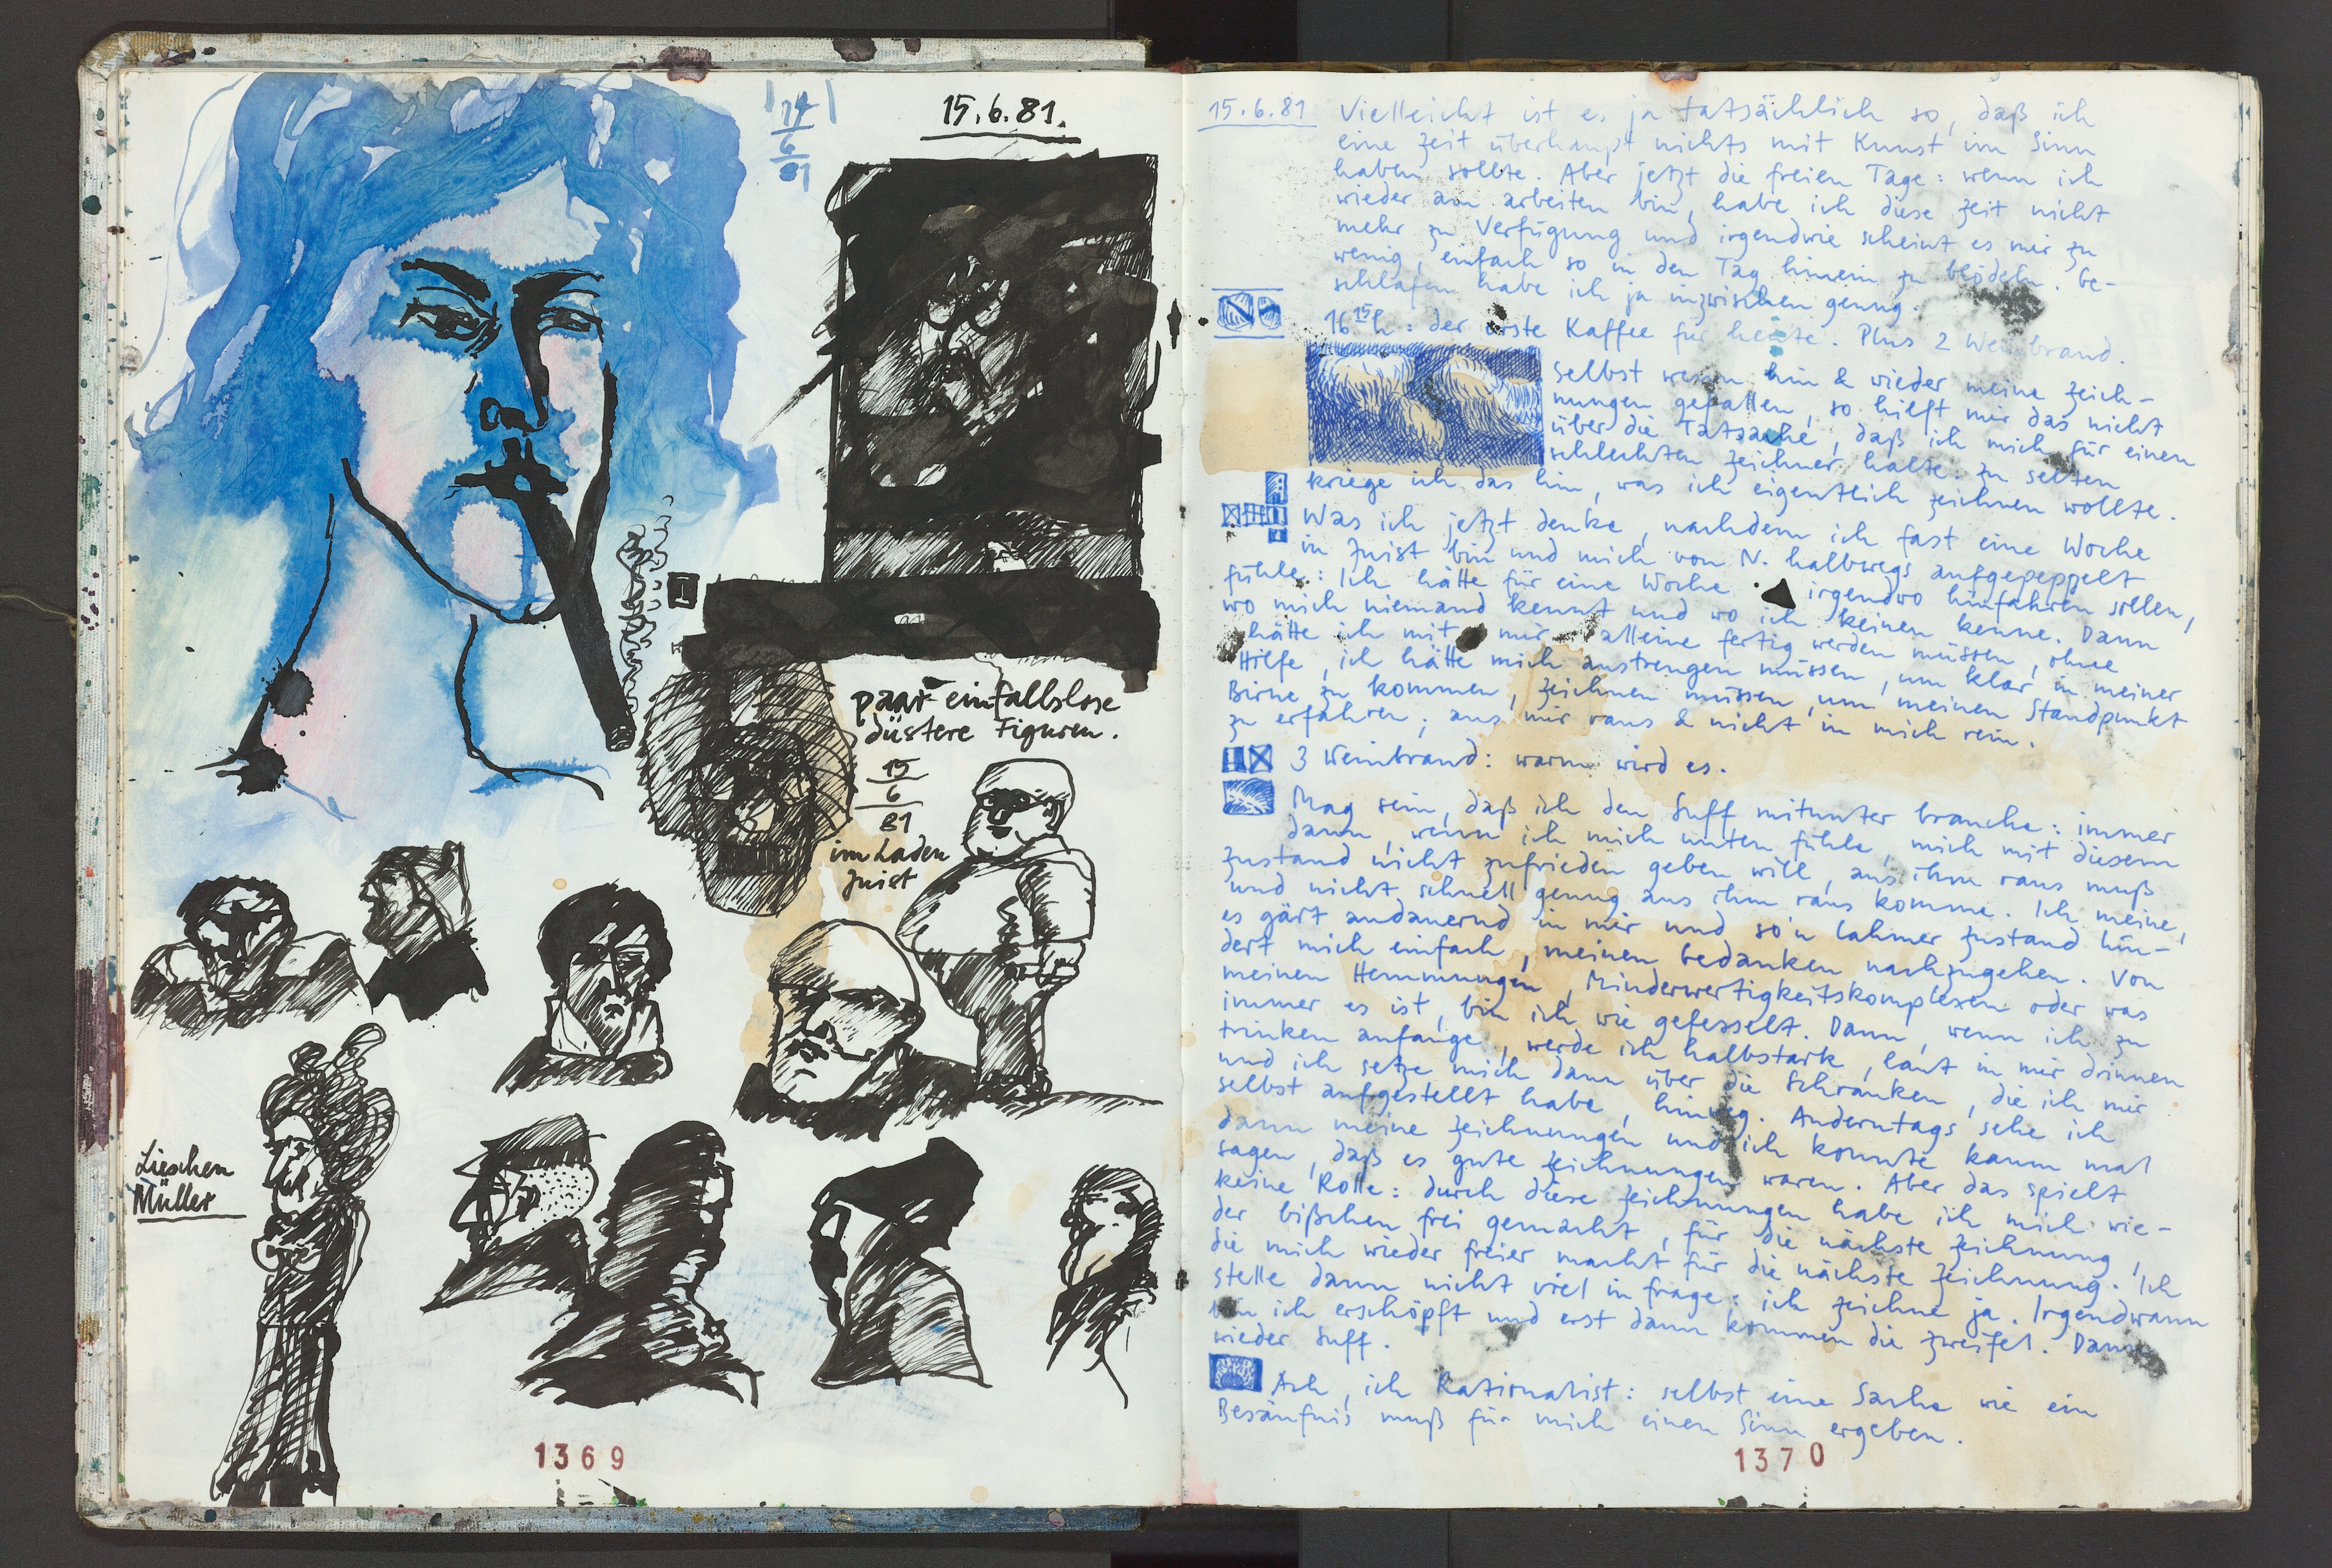 14
6
81
15.6.81.
1
paar einfallslose
düstere Figuren.
15
6
81
im Laden
Juist
Lieschen
Müller
1369
15.6.81 Vielleicht ist es ja tatsächlich so, daß ich
eine Zeit überhaupt nichts mit Kunst im Sinn
haben sollte. Aber jetzt die freien Tage: wenn ich
wieder am arbeiten bin, habe ich diese Zeit nicht
mehr zu Verfügung und irgendwie scheint es mir zu
wenig, einfach so in den Tag hinein zu blödeln. Ge-
schlafen habe ich ja inzwischen genug.
16 15 h: der erste Kaffee für heute. Plus 2 Weinbrand.
Selbst wenn hin & wieder meine Zeich-
nungen gefallen, so hilft mir das nicht
über die Tatsache, daß ich mich für einen
schlechten Zeichner halte: zu selten
kriege ich das hin, was ich eigentlich zeichnen wollte.
Was ich jetzt denke, nachdem ich fast eine Woche
in Juist bin und mich von N. halbwegs aufgepeppelt
fühle: Ich hätte für eine Woche irgendwo hinfahren sollen,
wo mich niemand kennt und wo ich keinen kenne. Dann
hätte ich mit mir alleine fertig werden müssen, ohne
Hilfe, ich hätte mich anstrengen müssen, um klar in meiner
Birne zu kommen, zeichnen müssen, um meinen Standpunkt
zu erfahren; aus mir raus & nicht in mich rein.
3 Weinbrand: warm wird es.
Mag sein, daß ich den Suff mitunter brauche: immer
dann, wenn ich mich unten fühle, mich mit diesem
Zustand nicht zufrieden geben will, aus ihm raus muß
und nicht schnell genug aus ihm raus komme. Ich meine,
es gärt andauernd in mir und so'n lahmer Zustand hin-
dert mich einfach, meinen Gedanken nachzugehen. Von
meinen Hemmungen, Minderwertigkeitskomplexen oder was
immer es ist, bin ich wie gefesselt. Dann, wenn ich zu
trinken anfange, werde ich halbstark, laut in mir drinnen
und ich setze mich dann über die Schranken, die ich mir
selbst aufgestellt habe, hinweg. Anderntags sehe ich
dann meine Zeichnungen und ich konnte kaum mal
sagen, daß es gute Zeichnungen waren. Aber das spielt
keine Rolle: durch diese Zeichnungen habe ich mich wie-
der bißchen frei gemacht, für die nächste Zeichnung,
die mich wieder freier macht für die nächste Zeichnung. Ich
stelle dann nicht viel in frage: ich zeichne ja. Irgendwann
bin ich erschöpft und erst dann kommen die Zweifel. Dann
wieder Suff.
Ach, ich Rationalist: selbst eine Sache wie ein
Besäufnis muß für mich einen Sinn ergeben.
1370